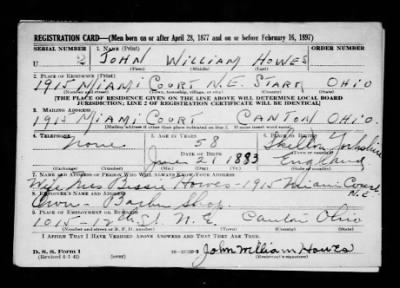 REGISTRATION CARD—(Men born on or after April 28, 1877 and on or before February 16, 1897)
SERIAL NUMBER 1. NAME (Print) ORDER NUMBER
U JOHN WILLIAM HOWES
(First) (Middle) (Last)
2. PLACE OF RESIDENCE (Print)
1915 MIAMI COURT N.E. STARK OHIO
(Number and street) (Town, township, village, or city) (County) (State)
[THE PLACE OF RESIDENCE GIVEN ON THE LINE ABOVE WILL DETERMINE LOCAL BOARD
JURISDICTION; LINE 2 OF REGISTRATION CERTIFICATE WILL BE IDENTICAL]
3. MAILING ADDRESS
1915 MIAMI COURT CANTON OHIO.
[Mailing address if other than place indicated on line 2. If same insert word same]
4. TELEPHONE 5. AGE IN YEARS 6. PLACE OF BIRTH
None 58 Yorkshire
DATE OF BIRTH
June 21 1883 England
(Mo.) (Day) (Yr.)
7. NAME AND ADDRESS OF PERSON WHO WILL ALWAYS KNOW YOUR ADDRESS
Wife Mrs Bessie Howes - 1915 Miami Court N.E.
8. EMPLOYER'S NAME AND ADDRESS
Own - Barber Shop.
9. PLACE OF EMPLOYMENT OR BUSINESS
1015 - 12th St. N.E. Canton Ohio
(Number and street or R. F. D. number) (Town) (County) (State)
I AFFIRM THAT I HAVE VERIFIED ABOVE ANSWERS AND THAT THEY ARE TRUE.
D. S. S. Form 1
(Revised 4-1-42) John William Howes